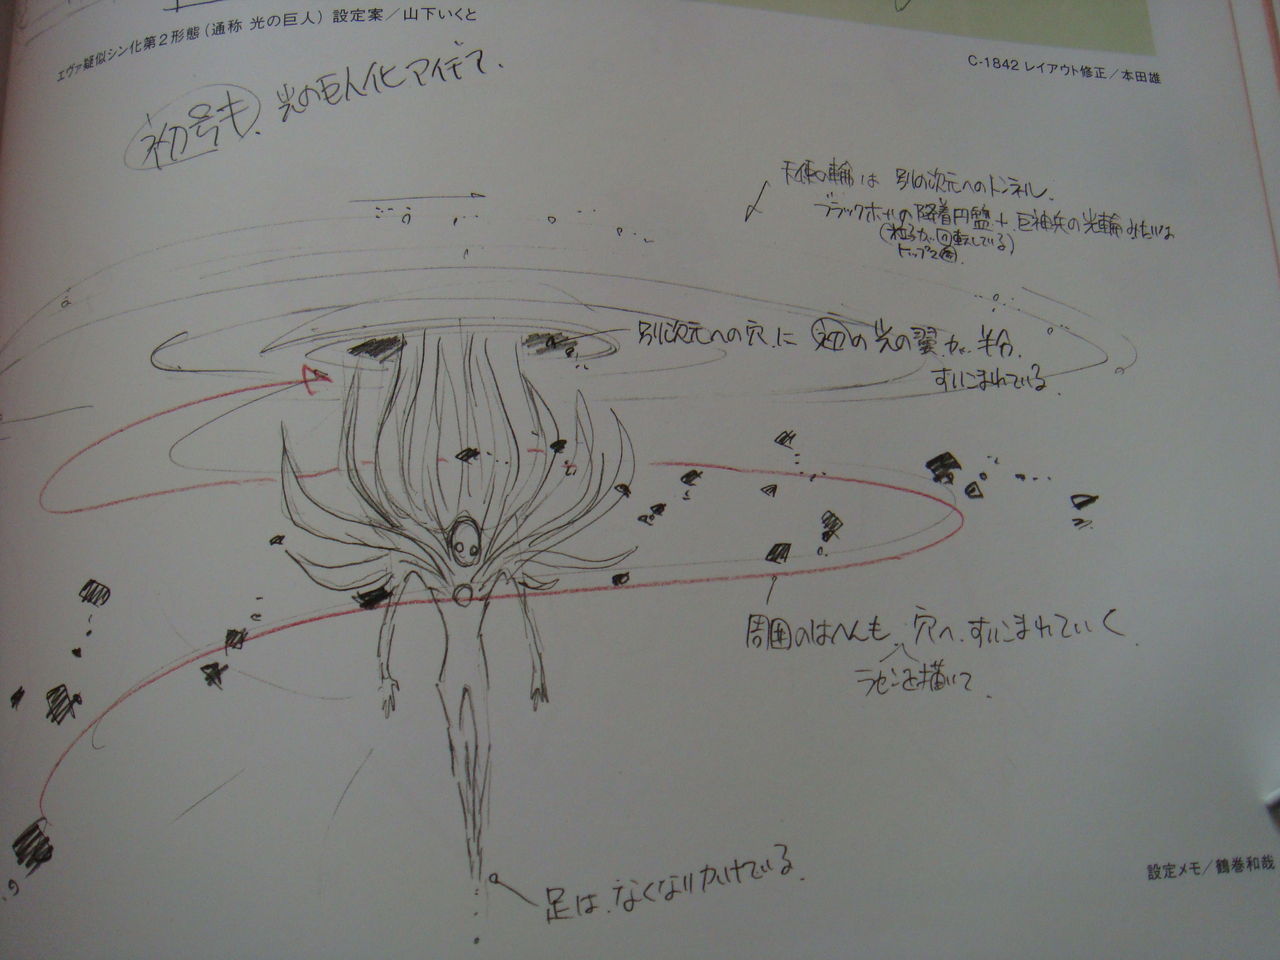 エヴァ疑似シン化第2形態(通称 光の巨人)設定案/山下いくと
C-1842 レイアウト修正/本田雄
初号も、光の巨人化アイデア、
天使の輪は 別の次元へのトンネル、
ブラックホールの降着円盤+巨神兵の光輪みたいな
(粒子が回転している)
トップ2の
別次元への穴に 初の光の翼が、半分、
すいこまれている
周囲のはへんも、穴へ、すいこまれていく
ラセンを描いて、
足は、なくなりかけている、
設定メモ/鶴巻和哉